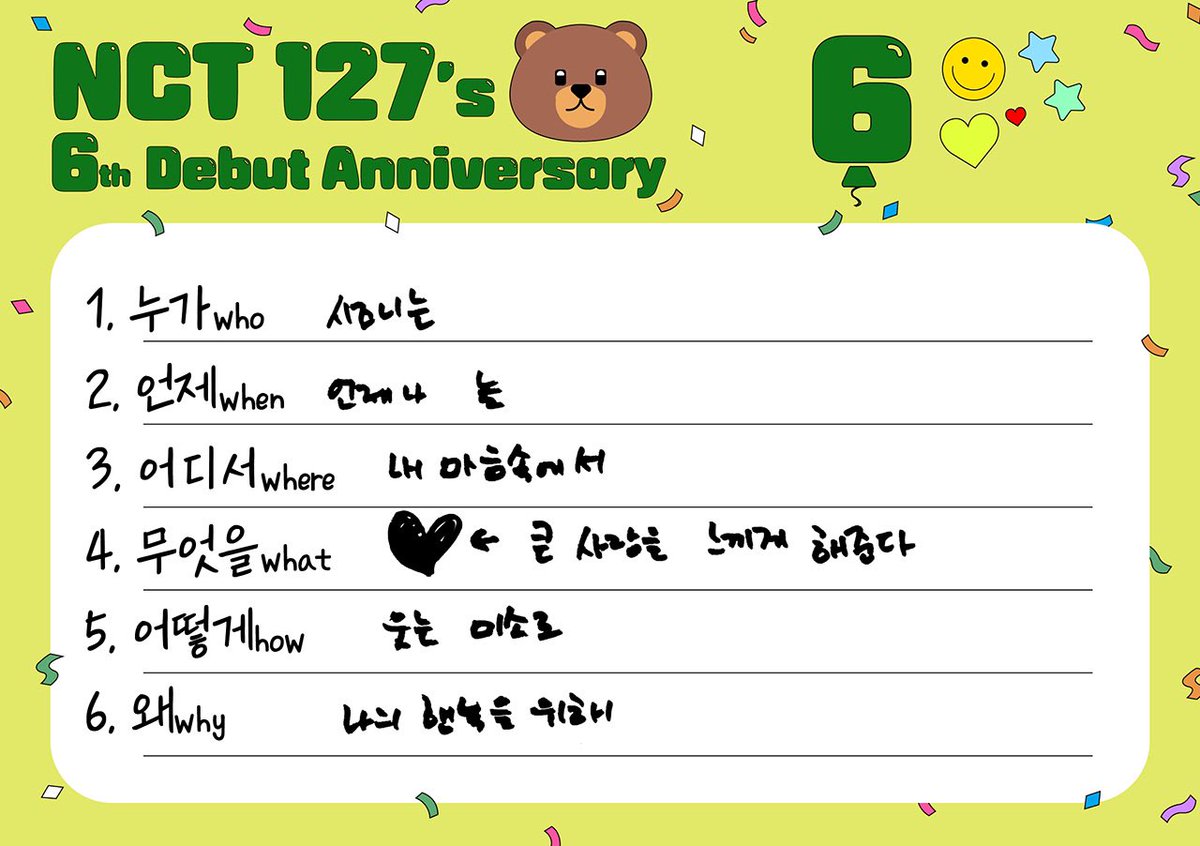 NCT 127's
6th Debut Anniversary
6
1. 누가who 시즈니는
2. 언제when 언제나 늘
3. 어디서where 내 마음속에서
4. 무엇을what ← 큰 사랑을 느끼게 해준다
5. 어떻게how 웃는 미소로
6. 왜why 나의 행복을 위해